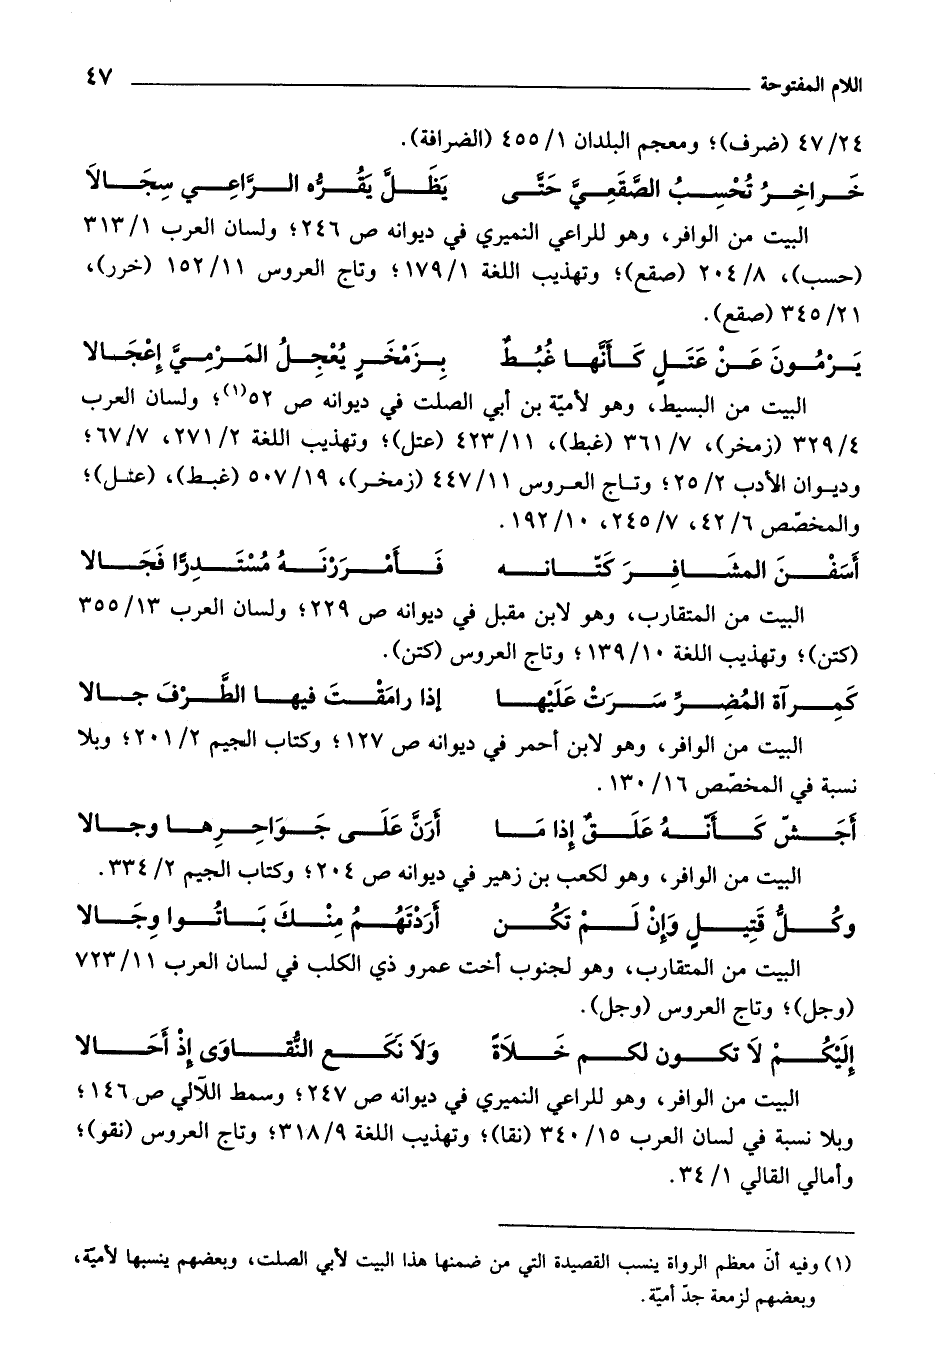 اللام المفتوحة ٤٧
٤٧/٢٤ (ضرف)؛ ومعجم البلدان ٤٥٥/١ (الضرافة).
خَراخِرُ تُحْسِبُ الصَّقَعِيَّ حَتَّى يَظَلَّ يَقُرُّه الرَّاعِي سِجَالاَ
البيت من الوافر، وهو للراعي النميري في ديوانه ص ٢٤٦؛ ولسان العرب ٣١٣/١
(حسب)، ٢٠٤/٨ (صقع)؛ وتهذيب اللغة ١٧٩/١؛ وتاج العروس ١٥٢/١١ (خرر)،
٣٤٥/٢١ (صقع).
يَرْمُونَ عَنْ عَتَلٍ كَأَنَّها غُبُطٌ بِزَمْخَرٍ يُعْجِلُ المَرْمِيَّ إعْجَالا
البيت من البسيط، وهو لأميّة بن أبي الصلت في ديوانه ص ٥٢(١)؛ ولسان العرب
٣٢٩/٤ (زمخر)، ٣٦١/٧ (غبط)، ٤٢٣/١١ (عتل)؛ وتهذيب اللغة ٢٧١/٢، ٦٧/٧؛
وديوان الأدب ٢٥/٢؛ وتاج العروس ٤٤٧/١١ (زمخر)، ٥٠٧/١٩ (غبط)، (عتل)؛
والمخصّص ٤٢/٦، ٢٤٥/٧، ١٩٢/١٠.
أَسَفْنَ المشَافِرَ كَتّانه فَأَمْرَرْنَهُ مُسْتَدِرًّا فَجَالا
البيت من المتقارب، وهو لابن مقبل في ديوانه ص ٢٢٩؛ ولسان العرب ٣٥٥/١٣
(كتن)؛ وتهذيب اللغة ١٣٩/١٠؛ وتاج العروس (كتن).
كَمِرآة المُضِرِّ سَرَتْ عَلَيْها إذا رامَقْتَ فيها الطَّرْفَ جالا
البيت من الوافر، وهو لابن أحمر في ديوانه ص ١٢٧؛ وكتاب الجيم ٢٠١/٢؛ وبلا
نسبة في المخصّص ١٣٠/١٦.
أَجَشّ كَأَنّهُ عَلَقٌ إذا مَا أَرَنَّ عَلَى جَوَاحِرِها وجالا
البيت من الوافر، وهو لكعب بن زهير في ديوانه ص ٢٠٤؛ وكتاب الجيم ٣٣٤/٢.
وكُلُّ قَتِيلٍ وَإنْ لَمْ تَكُن أَرَدْتَهُمُ مِنْكَ بَاتُوا وِجَالا
البيت من المتقارب، وهو لجنوب أخت عمرو ذي الكلب في لسان العرب ٧٢٣/١١
(وجل)؛ وتاج العروس (وجل).
إلَيْكُمْ لاَ تكون لكم خَلاَةً وَلاَ نَكَع النُّقَاوَى إذْ أَحَالا
البيت من الوافر، وهو للراعي النميري في ديوانه ص ٢٤٧؛ وسمط اللآلي ص ١٤٦؛
وبلا نسبة في لسان العرب ٣٤٠/١٥ (نقا)؛ وتهذيب اللغة ٣١٨/٩؛ وتاج العروس (نقو)؛
وأمالي القالي ٣٤/١.
(١) وفيه أنّ معظم الرواة ينسب القصيدة التي من ضمنها هذا البيت لأبي الصلت، وبعضهم ينسبها لأميّة،
وبعضهم لزمعة جدّ أميّة.